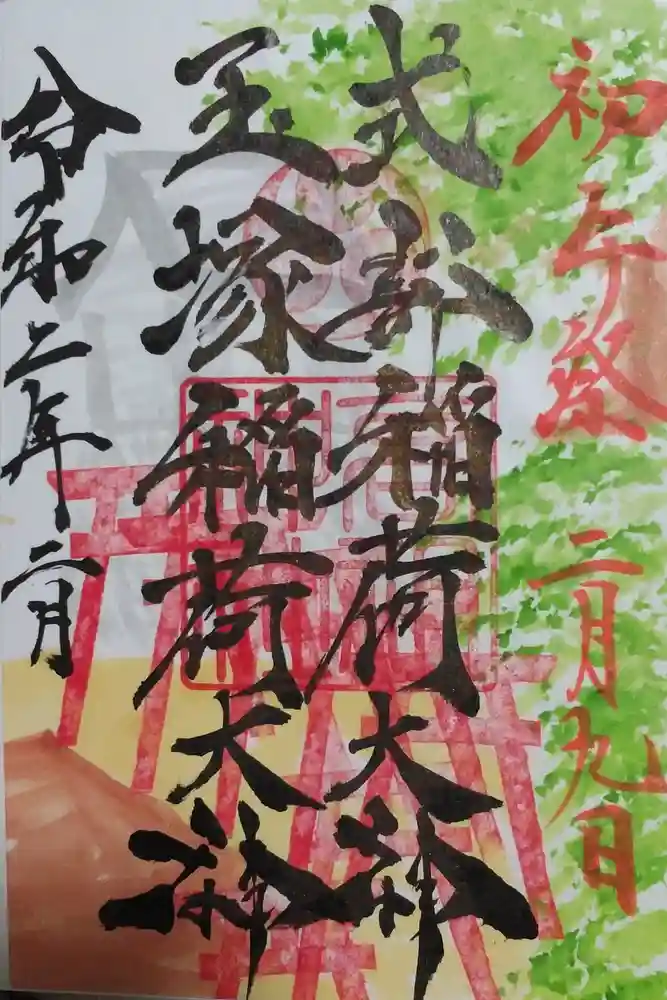 初午祭 二月九日
稲荷大神
玉塚稲荷大神
令和二年二月